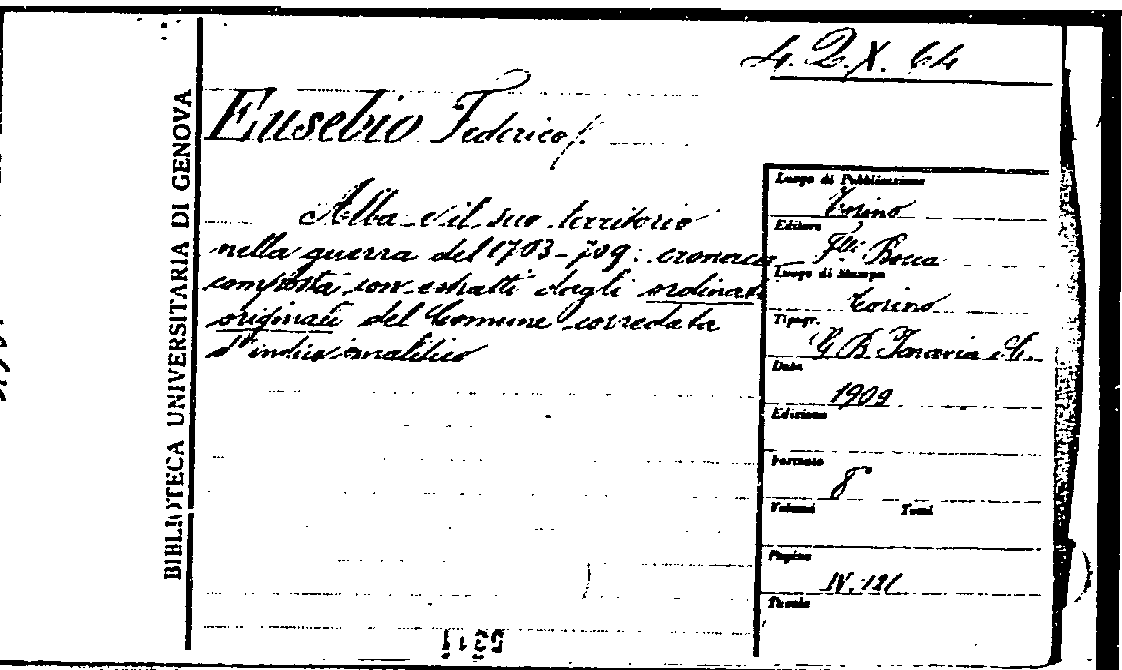 4. Q. X. 64
BIBLIOTECA UNIVERSITARIA DI GENOVA
Eusebio Federico
Alba e il suo territorio
nella guerra del 1703-709: cronaca
composta con estratti dagli ordinati
originali del Comune corredata
d'indice analitico
Luogo di Pubblicazione
Torino
Editore
F.lli Bocca
Luogo di Stampa
Torino
Tipogr.
G B Paravia e C.
Data
1909
Edizione
Formato
8°
Volumi Tomi
Pagine
IV. 121
Tavole